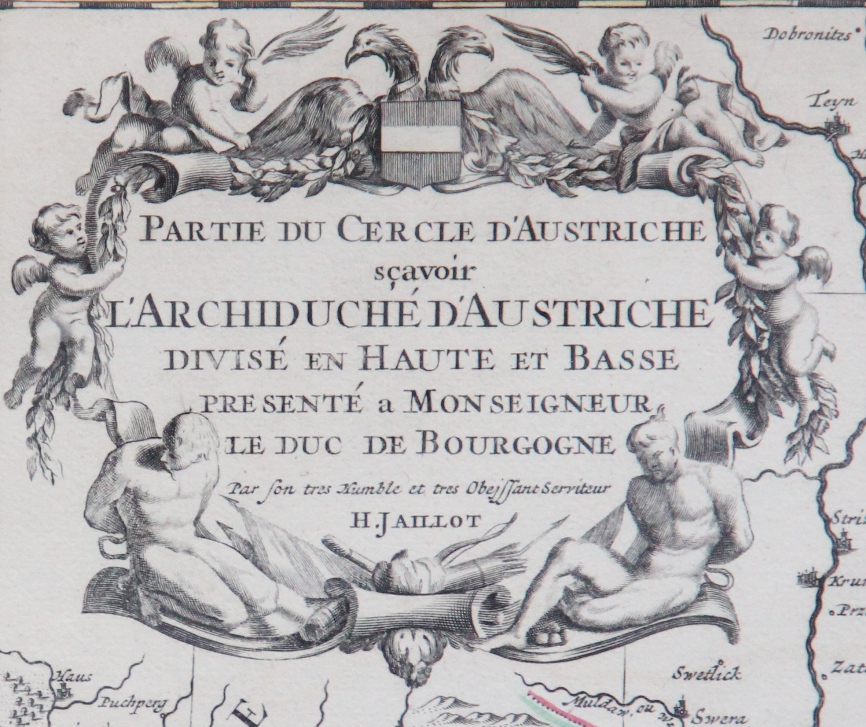 Dobronites
Teyn
PARTIE DU CERCLE D'AUSTRICHE
sçavoir
L'ARCHIDUCHÉ D'AUSTRICHE
DIVISÉ EN HAUTE ET BASSE
PRESENTÉ a MONSEIGNEUR
LE DUC DE BOURGOGNE
Par son tres Humble et tres Obeissant Serviteur
H. JAILLOT
Haus
Puchperg
E
Swetlick
Muldaw, ou
Swera